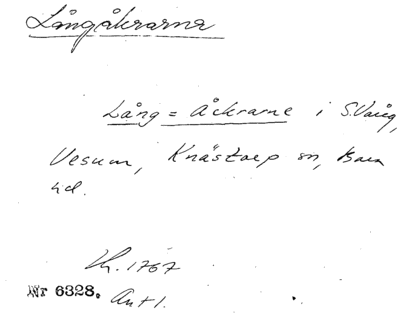 Långåkrarna
Lång = Åckrarne i S. Vång,
Vesum, Knästorp sn, Bara
hd.
Lh. 1767
Nr 6328. Ant 1.